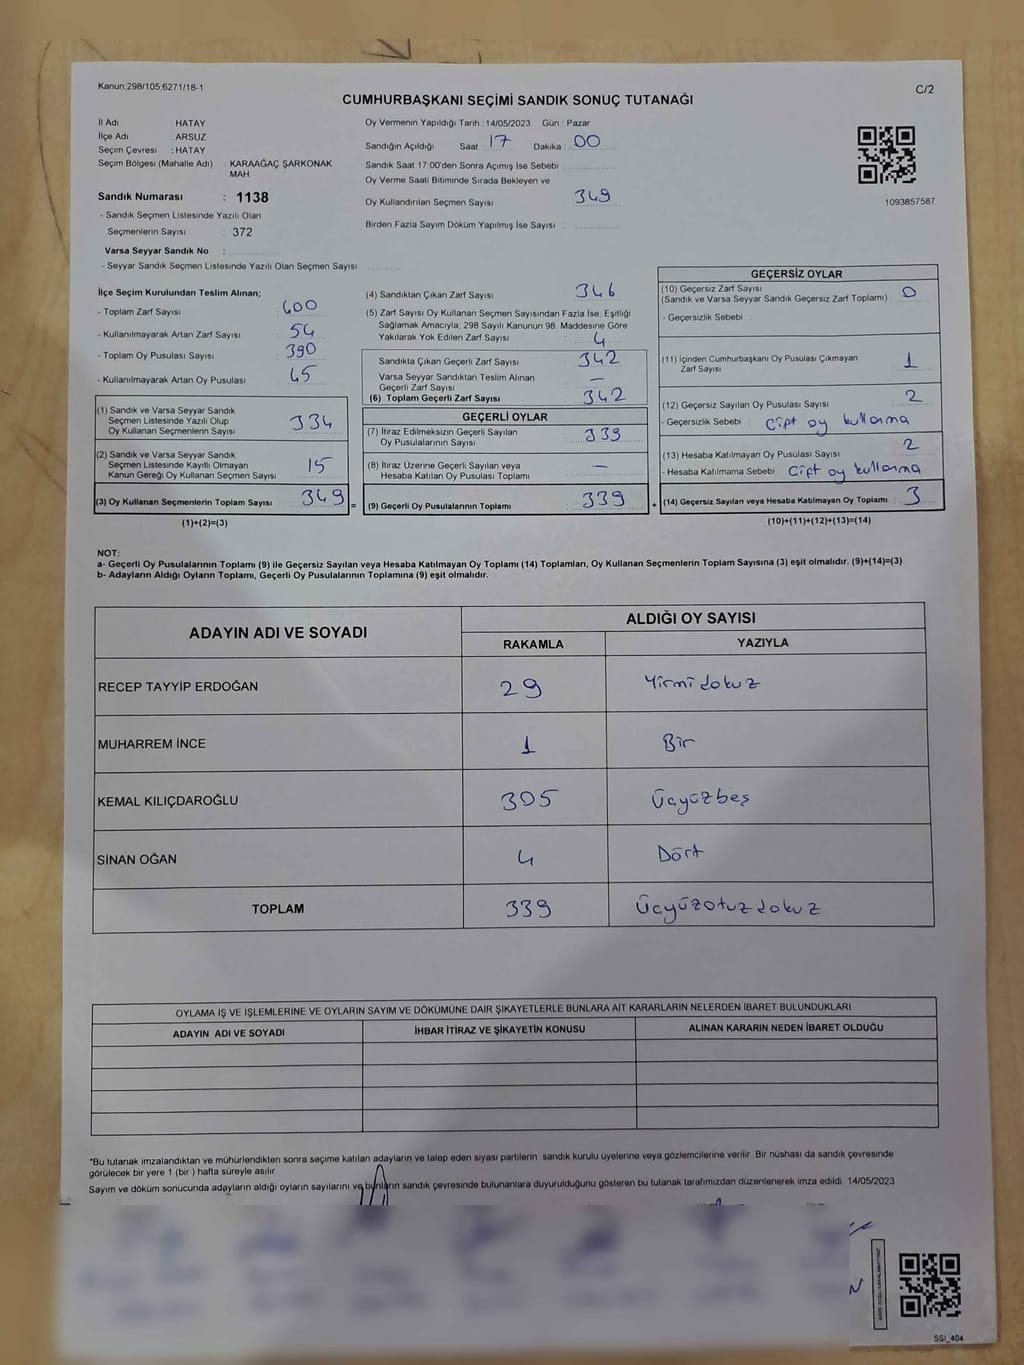 Kanun;298/105;6271/18-1
C/2
CUMHURBAŞKANI SEÇİMİ SANDIK SONUÇ TUTANAĞI
İl Adı HATAY
İlçe Adı ARSUZ
Seçim Çevresi : HATAY
Seçim Bölgesi (Mahalle Adı) : KARAAĞAÇ ŞARKONAK
MAH.
Sandık Numarası : 1138
- Sandık Seçmen Listesinde Yazılı Olan
Seçmenlerin Sayısı : 372
Varsa Seyyar Sandık No :
- Seyyar Sandık Seçmen Listesinde Yazılı Olan Seçmen Sayısı
Oy Vermenin Yapıldığı Tarih :14/05/2023 Gün : Pazar
Sandığın Açıldığı Saat 17 Dakika 00
Sandık Saat 17:00'den Sonra Açımış İse Sebebi
Oy Verme Saati Bitiminde Sırada Bekleyen ve
Oy Kullandırılan Seçmen Sayısı 349
Birden Fazla Sayım Döküm Yapılmış İse Sayısı
1093857587
İlçe Seçim Kurulundan Teslim Alınan;
- Toplam Zarf Sayısı : 400
- Kullanılmayarak Artan Zarf Sayısı : 54
- Toplam Oy Pusulası Sayısı : 390
- Kullanılmayarak Artan Oy Pusulası : 45
(1) Sandık ve Varsa Seyyar Sandık
Seçmen Listesinde Yazılı Olup
Oy Kullanan Seçmenlerin Sayısı 334
(2) Sandık ve Varsa Seyyar Sandık
Seçmen Listesinde Kayıtlı Olmayan
Kanun Gereği Oy Kullanan Seçmen Sayısı 15
(3) Oy Kullanan Seçmenlerin Toplam Sayısı 349 =
(1)+(2)=(3)
(4) Sandıktan Çıkan Zarf Sayısı 346
(5) Zarf Sayısı Oy Kullanan Seçmen Sayısından Fazla İse, Eşitliği
Sağlamak Amacıyla, 298 Sayılı Kanunun 98. Maddesine Göre
Yakılarak Yok Edilen Zarf Sayısı 4
Sandıkta Çıkan Geçerli Zarf Sayısı 342
Varsa Seyyar Sandıktan Teslim Alınan
Geçerli Zarf Sayısı —
(6) Toplam Geçerli Zarf Sayısı 342
GEÇERLİ OYLAR
(7) İtiraz Edilmeksizin Geçerli Sayılan
Oy Pusulalarının Sayısı 339
(8) İtiraz Üzerine Geçerli Sayılan veya
Hesaba Katılan Oy Pusulası Toplamı —
(9) Geçerli Oy Pusulalarının Toplamı 339 +
GEÇERSİZ OYLAR
(10) Geçersiz Zarf Sayısı
(Sandık ve Varsa Seyyar Sandık Geçersiz Zarf Toplamı) : 0
- Geçersizlik Sebebi :
(11) İçinden Cumhurbaşkanı Oy Pusulası Çıkmayan
Zarf Sayısı 1
(12) Geçersiz Sayılan Oy Pusulası Sayısı 2
- Geçersizlik Sebebi : Çift oy kullanma
(13) Hesaba Katılmayan Oy Pusulası Sayısı 2
- Hesaba Katılmama Sebebi Çift oy kullanma
(14) Geçersiz Sayılan veya Hesaba Katılmayan Oy Toplamı 3
(10)+(11)+(12)+(13)=(14)
NOT:
a- Geçerli Oy Pusulalarının Toplamı (9) ile Geçersiz Sayılan veya Hesaba Katılmayan Oy Toplamı (14) Toplamları, Oy Kullanan Seçmenlerin Toplam Sayısına (3) eşit olmalıdır. (9)+(14)=(3)
b- Adayların Aldığı Oyların Toplamı, Geçerli Oy Pusulalarının Toplamına (9) eşit olmalıdır.
ADAYIN ADI VE SOYADI
ALDIĞI OY SAYISI
RAKAMLA YAZIYLA
RECEP TAYYİP ERDOĞAN 29 Yirmi dokuz
MUHARREM İNCE 1 Bir
KEMAL KILIÇDAROĞLU 305 Üçyüzbeş
SİNAN OĞAN 4 Dört
TOPLAM 339 Üçyüzotuzdokuz
OYLAMA İŞ VE İŞLEMLERİNE VE OYLARIN SAYIM VE DÖKÜMÜNE DAİR ŞİKAYETLERLE BUNLARA AİT KARARLARIN NELERDEN İBARET BULUNDUKLARI
ADAYIN ADI VE SOYADI İHBAR İTİRAZ VE ŞİKAYETİN KONUSU ALINAN KARARIN NEDEN İBARET OLDUĞU
*Bu tutanak imzalandıktan ve mühürlendikten sonra seçime katılan adayların ve talep eden siyasi partilerin sandık kurulu üyelerine veya gözlemcilerine verilir. Bir nüshası da sandık çevresinde
görülecek bir yere 1 (bir ) hafta süreyle asılır.
Sayım ve döküm sonucunda adayların aldığı oyların sayılarını ve bunların sandık çevresinde bulunanlara duyurulduğunu gösteren bu tutanak tarafımızdan düzenlenerek imza edildi. 14/05/2023
SSI_404